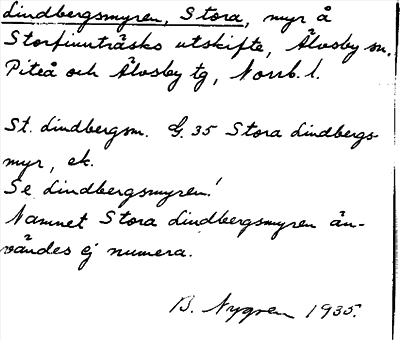 Lindbergsmyren, Stora, myr å
Storfinnträsks utskifte, Älvsby sn.
Piteå och Älvsby tg, Norrb. l.
St. Lindbergsm. G. 35 Stora Lindbergs-
myr, ek.
Se Lindbergsmyren!
Namnet Stora Lindbergsmyren än-
vändes ej numera.
B. Nygren 1935.